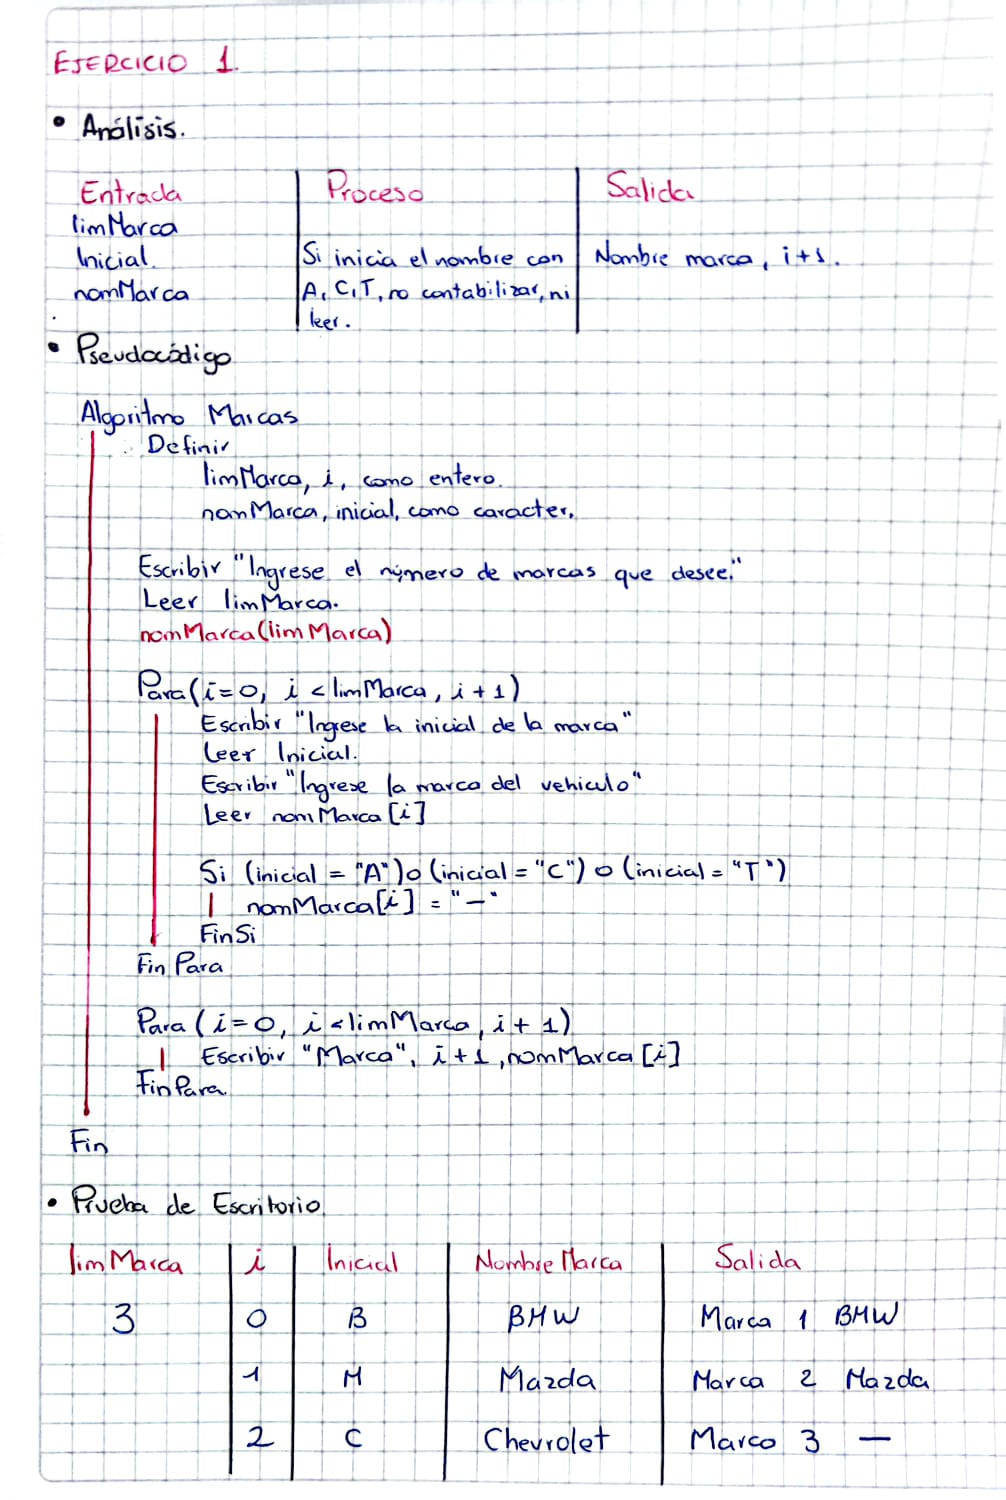 EJERCICIO 1.
• Análisis.
Entrada Proceso Salida
limMarca
Inicial. Si inicia el nombre con Nombre marca, i+1.
nomMarca A, C, T, no contabilizar, ni
leer.
• Pseudocódigo
Algoritmo Marcas
Definir
limMarca, i, como entero.
nomMarca, inicial, como caracter.
Escribir "Ingrese el número de marcas que desee."
Leer limMarca.
nomMarca(limMarca)
Para(i=0, i<limMarca, i+1)
Escribir "Ingrese la inicial de la marca"
Leer Inicial.
Escribir "Ingrese la marca del vehiculo"
Leer nomMarca[i]
Si (inicial = "A")o(inicial="C")o(inicial="T")
nomMarca[i] = "—"
FinSi
Fin Para
Para (i=0, i<limMarca, i+1)
Escribir "Marca", i+1, nomMarca[i]
FinPara
Fin
• Prueba de Escritorio
limMarca i Inicial Nombre Marca Salida
3 0 B BMW Marca 1 BMW
1 M Mazda Marca 2 Mazda
2 C Chevrolet Marca 3 —